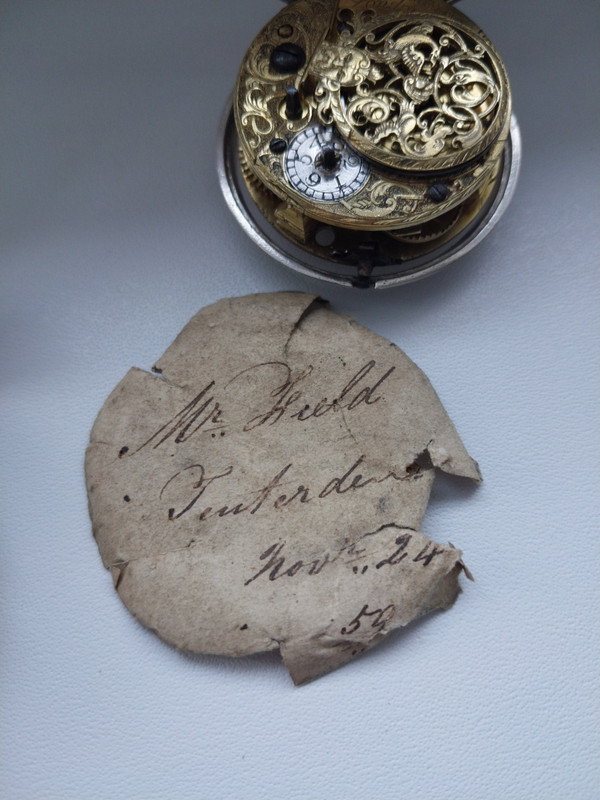 Mr. Field
Tenterden
Novr. 24
59